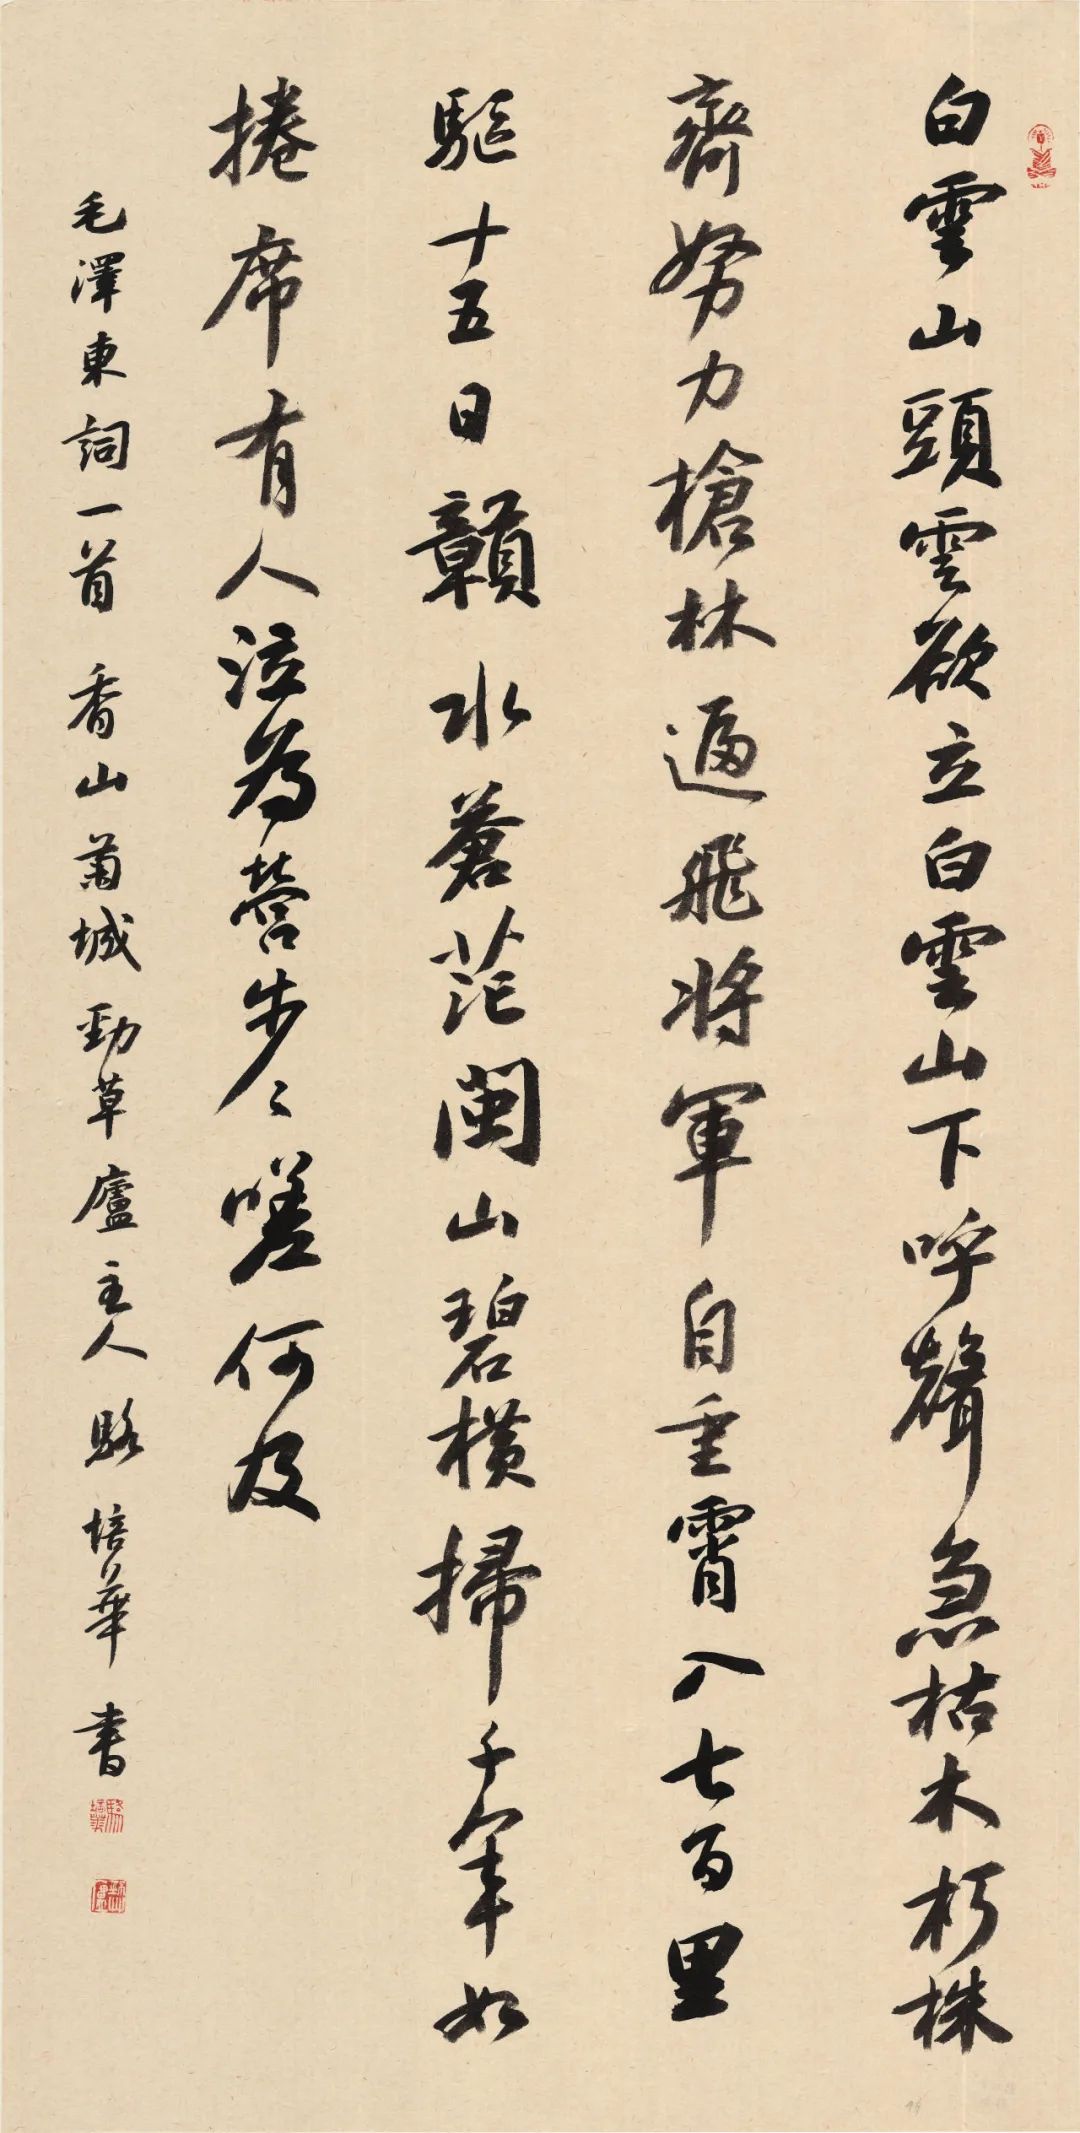 白雲山頭雲欲立白雲山下呼聲急枯木朽株
齊努力槍林逼飛將軍自重霄入七百里
驅十五日贛水蒼茫閩山碧橫掃千軍如
捲席有人泣為營步々嗟何及
毛澤東詞一首 香山菊城勁草廬主人駱培華書